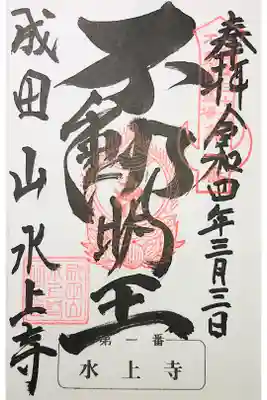 奉拝 令和四年三月三日
不動明王
成田山 水上寺
第一番
水上寺